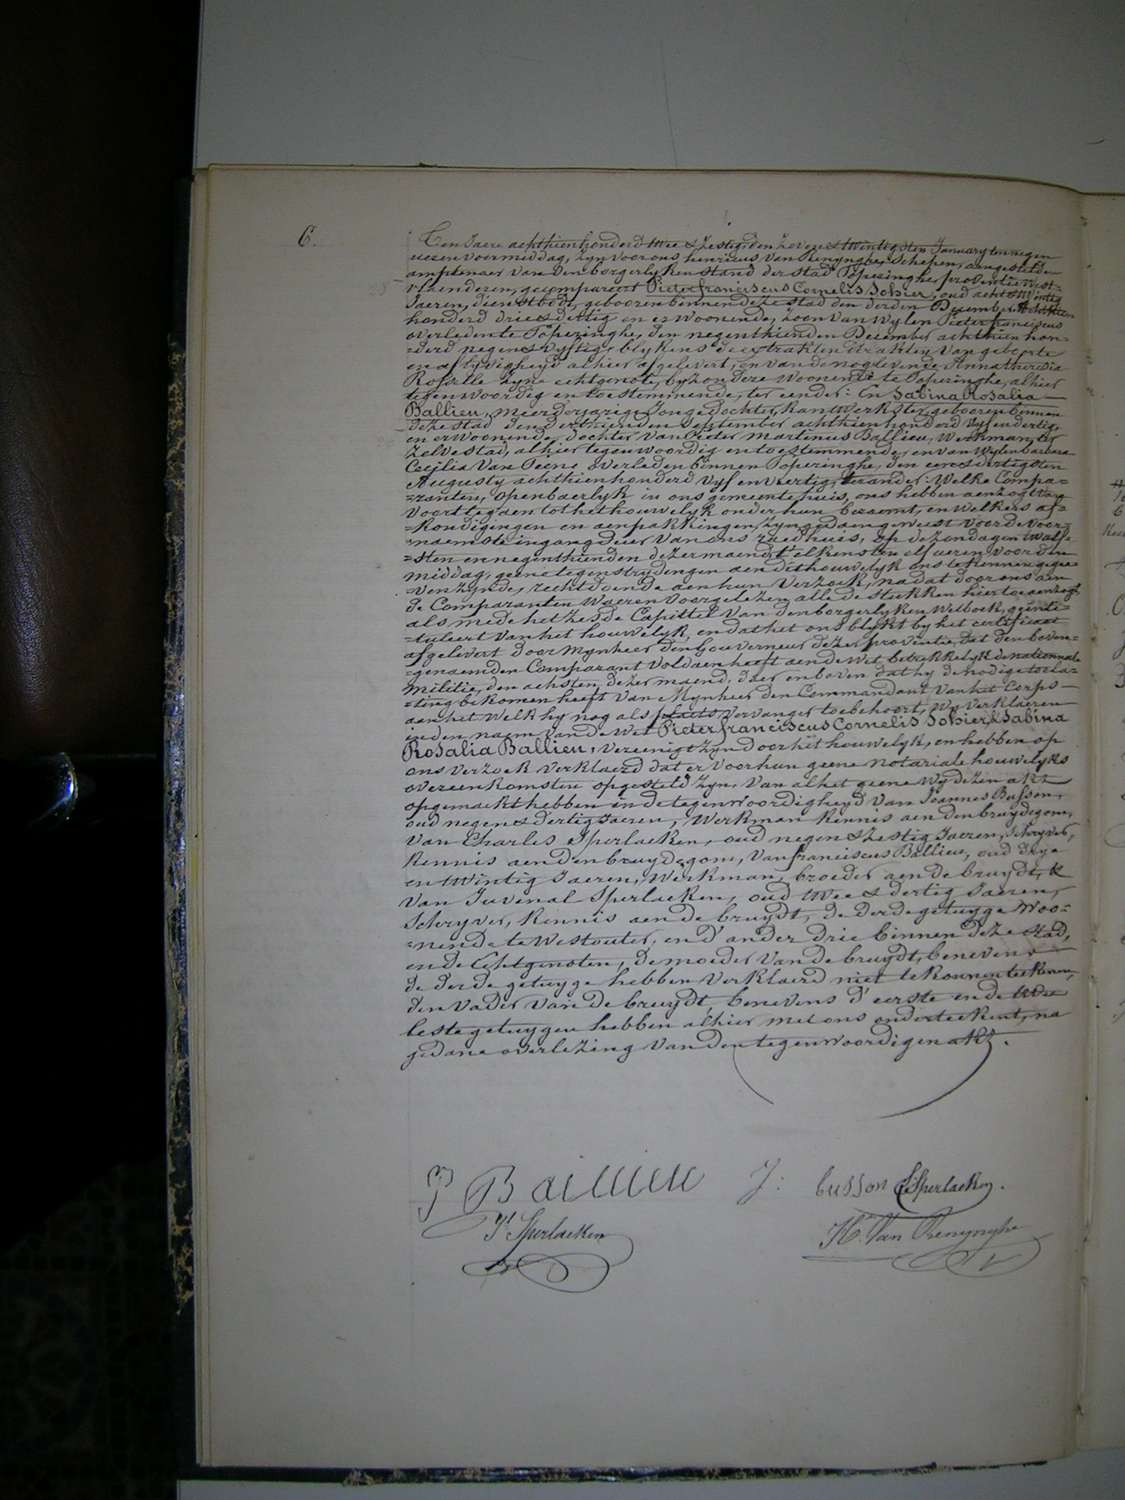 6.
Ten Jaere achthien honderd twee & zestig, den zeven & twintigsten January ten negen
ueren voormiddag, zyn voor ons henricus Van Renynghe Schepen, aengestelden
amptenaer van den borgerlyken stand der stad Poperinghe, provintie West-
vlaenderen, gecompareert Pieter franciscus Cornelis Sohier, oud acht & twintig
Jaeren, dienstbode, gebooren binnen deze stad den derden December achthien
honderd drie & dertig en er woonende, zoon van wylen Pieter franciscus
overleden te Poperinghe, den negenthienden December achthien hon-
=derd negen & vyftig, blykens de extrakten der akten van geboorte
en aflyvigheyd alhier afgelevert, en van de nog levende Anna theresia
Roselle zyne echtgenote, byzondere woonende te Poperinghe, alhier
tegenwoordig en toestemmende, ter eender: En Sabina Rosalia
Ballieu, meerderjarige jonge dochter, kantwerkster, gebooren binnen
deze stad den derthienden September achthien honderd vyf en dertig,
en er woonende, dochter van Pieter Martinus Ballieu, Werkman, ter
zelve stad, alhier tegenwoordig en toestemmende, en van wylen barbara
Cecilia Van Peene overleden binnen Poperinghe, den een & dertigsten
Augusty achthien honderd vyf en veertig, ter ander: Welke Compa-
=ranten, openbaerlyk in ons gemeentehuis, ons hebben aenzogt van
voort te gaen tot het houwelyk onder hun beraemt, en welkers af=
=kondigingen en aenplakkingen zyn gedaen geweest voor de voor=
=naemste ingangdeur van ons raedhuis, op de zondagen twalf=
=sten en negenthienden dezer maend, t'elkens ten elf ueren voor den
middag, geene tegenstrydingen aen dit houwelyk ons te kennen gegee=
ven zynde, recht doende aen hun verzoek, na dat door ons aen
de Comparanten waeren voorgelezen alle de stukken hier toe aenzogt
als mede het zesde Capittel van den borgerlyken Wetboek, geinti=
=tuleert van het houwelyk, en dat het ons blykt by het certificaet
afgelevert door Mynheer den Gouverneur dezer provintie, dat den boven=
=genaemden Comparant voldaen heeft aen de Wet betrekkelyk de nationnale
Militie, den achsten dezer maend, daer en boven dat hy de nodige toela=
=ting bekomen heeft van Mynheer den Commandant van het Corps
aan het welk hy nog als plaets vervanger toebehoort, Wy verklaeren
in den naem van de Wet Pieter franciscus Cornelis Sohier & Sabina
Rosalia Ballieu, vereenigt zyn door het houwelyk, en hebben op
ons verzoek verklaerd dat er voor hun geene notariale houwelyks
overeenkomsten opgesteld zyn, van al het geene wy dezen akt
opgemaekt hebben in de tegenwoordigheyd van Joannes Busson,
oud negen & dertig Jaeren, Werkman kennis aen den bruydegom,
van Charles Sperlaeken, oud negen & zestig Jaeren, schryver,
kennis aen den bruydegom, van franciscus Ballieu, oud drye
en twintig Jaeren, Werkman, broeder aen de bruydt, &
van Juvenal Sperlaeken, oud twee & dertig Jaeren,
Schryver, kennis aen de bruydt, de derde getuyge woo=
=nende te Westouter, en d'ander drie binnen deze stad,
en de Echtgenoten, de moeder van de bruydt, benevens
de derde getuyge hebben verklaerd niet te konnen teekenen,
den vader van de bruydt benevens d'eerste en de twee
leste getuygen hebben alhier met ons onderteekent, na
gedane overlezing van den tegenwoordigen akt.
P Bailliue J: busson C Sperlaeken.
Jl Sperlaeken H. Van Renynghe